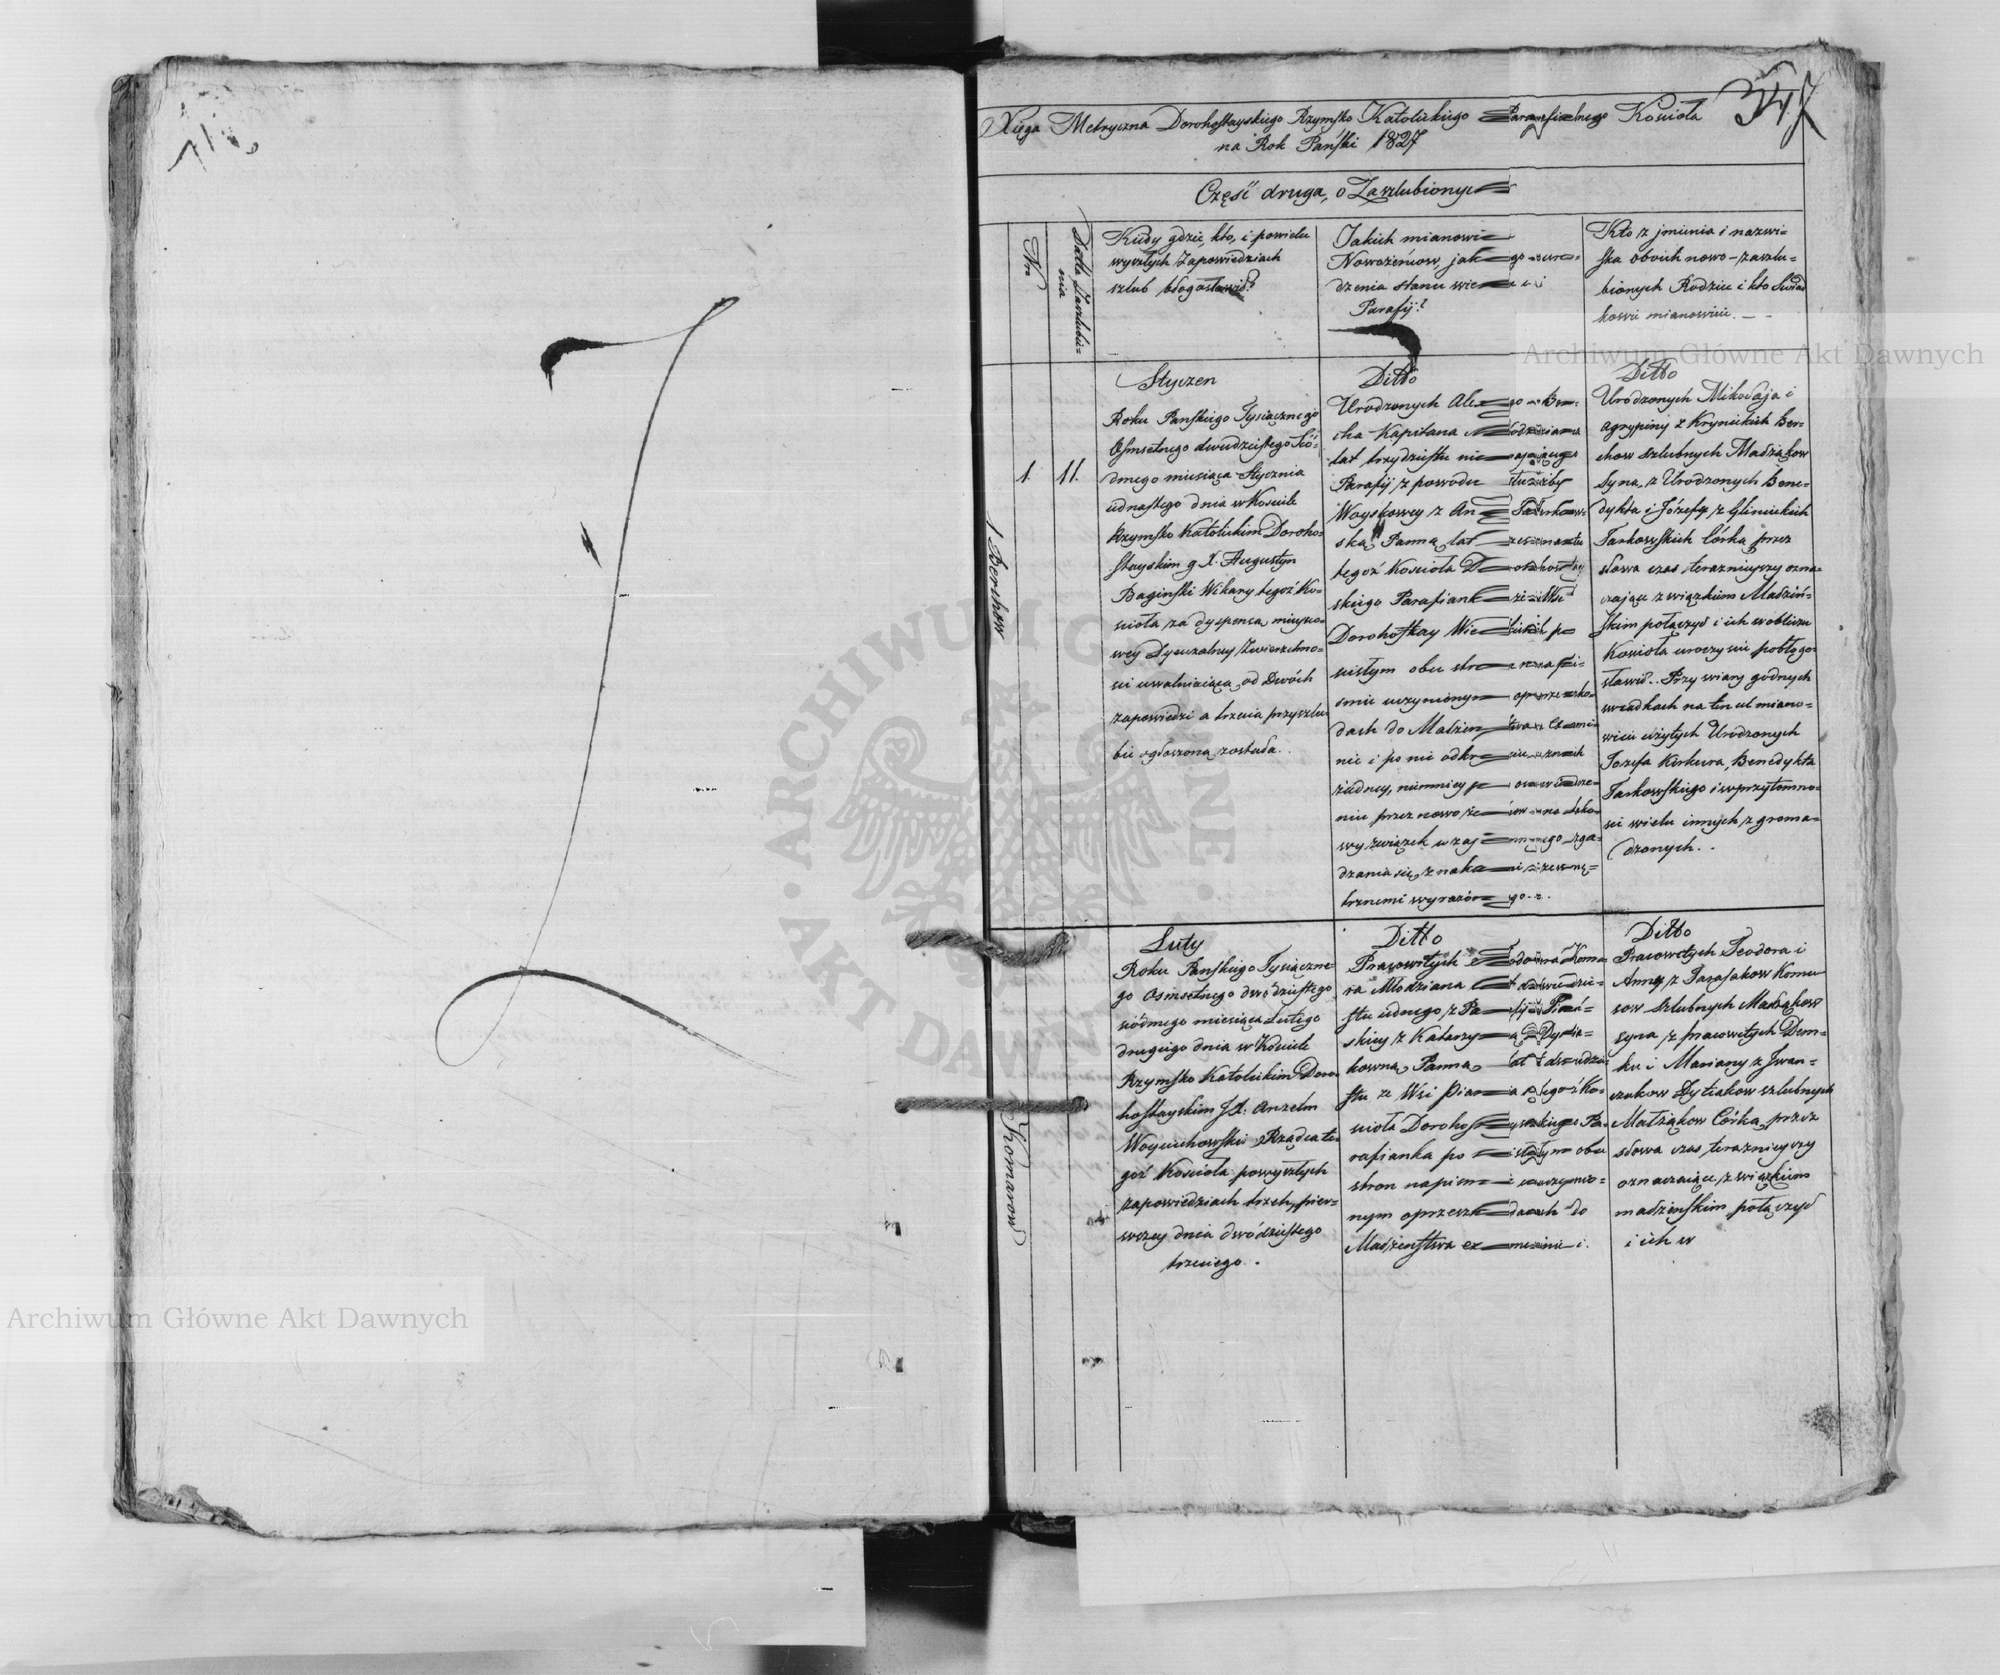 347
Xięga Metryczna Dorohostayskiego Rzymsko Katolickiego Parafialnego Kościoła
na Rok Pański 1827
Część druga, o Zaszlubionych
Nro
Datta Zaszlubie=
nia
Kiedy gdzie, kto, i powielu
wyszłych Zapowiedziach
szlub błogosławił?
Jakich mianowi
Nowożeńcow, jak go uro=
dzenia stanu wie
Parafij?
Kto z jmienia i nazwi=
ska oboich nowo-zaszlu=
bionych Rodzice i kto Świad
kowie mianowicie. – –
1 Berchow
1
11.
Styczen
Roku Pańskiego Tysiącznego
Osmsetnego dwudziestego Sió=
dmego miesiąca Stycznia
iednastego dnia w Kościele
Rzymsko Katolickim Doroho=
stayskim g X. Augustyn
Baginski Wikary tegoż Ko=
ścioła za dyspensą mieysco=
wey Dyecezalney Zwierzchno=
ści uwalniaiącą od Dwóch
zapowiedzi a trzecia przyszlu
bie ogłoszoną została..
Ditto
Urodzonych Ale go Ber=
cha Kapitana Młodziana
lat trzydziestu nie mającego
Parafij z powodu służby
Woyskowey z An Tarkow=
ską Panną lat szesnastu
tegoż Kościoła Dorohostay
skiego Parafiank ze Wsi
Dorohostay Wielkich po
ścisłym obu stron na pi=
śmie uczynionym o przeszko=
dach do Małżeństwa Examie
nie i po nie odkryciu żadnych
żadney, niemniey po oswiadcze=
niu przez nowożeńców na tako=
wy związek wzajemnego zga=
dzania się znakami zewnę=
trznemi wyrażonego..
Ditto
Urodzonych Mikołaja i
Agrypiny z Krynickich Ber=
chow szlubnych Małżąkow
Syna, z Urodzonych Bene=
dykta i Józefy z Glinickich
Tarkowskich Córką przez
słowa czas teraznieyszy ozna=
czające związkiem Małżeń=
skim połączył i ich w obliczu
Kościoła uroczyscie pobłogo=
sławił.. Przy wiary godnych
swiadkach na ten cel miano=
wicie użytych Urodzonych
Jozefa Kirkura, Benedykta
Tarkowskiego i w przytomno=
ści wielu innych zgroma=
dzonych..
1 Komarow
Luty
Roku Pańskiego Tysiączne=
go Osmsetnego dwódziestego
siódmego miesiąca Lutego
drugiego dnia w Kościele
Rzymsko Katolickim Doro=
hostayskim JX. Anzelm
Woyciechowski Rządca te=
goż Kościoła powyszłych
zapowiedziach trzech, pier=
wszey dnia dwódziestego
trzeciego.
Ditto
Pracowitych Koma
ra Młodziana lat dwudzie=
stu iednego z Parafij Piań=
skiey z Katarzyną Dytia=
kowną Panną lat dwudzie
stu ze Wsi Piania tegoż Ko=
ścioła Dorohostayskiego Pa=
rafianką po scisłym obu
stron napismie uczynio=
nym o przeszkodach do
Małżeństwa examienie i.
Ditto
Pracowitych Teodora i
Anny z Parasakow Koma
row szlubnych Małżąkow
syna z pracowitych Dem=
ka i Maryany z Jwan=
czukow Dytiakow szlubnych
Małżąkow Córką, przez
słowa czas teraznieyszy
oznaczaiące związkiem
małżeńskim, połączył
i ich w
Archiwum Główne Akt Dawnych
Archiwum Główne Akt Dawnych
ARCHIWUM GŁÓWNE AKT DAWNYCH